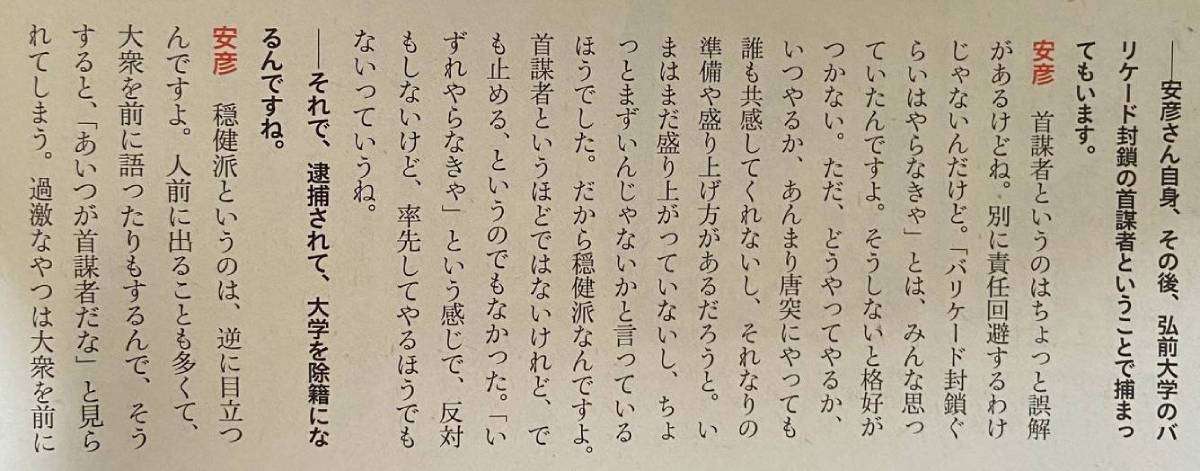 ――安彦さん自身、その後、弘前大学のバ
リケード封鎖の首謀者ということで捕まっ
てもいます。
安彦　首謀者というのはちょっと誤解
があるけどね。別に責任回避するわけ
じゃないんだけど。「バリケード封鎖ぐ
らいはやらなきゃ」とは、みんな思っ
ていたんですよ。そうしないと格好が
つかない。ただ、どうやってやるか、
いつやるか、あんまり唐突にやっても
誰も共感してくれないし、それなりの
準備や盛り上げ方があるだろうと。い
まはまだ盛り上がっていないし、ちょ
っとまずいんじゃないかと言っている
ほうでした。だから穏健派なんですよ。
首謀者というほどではないけれど、で
も止める、というのでもなかった。「い
ずれやらなきゃ」という感じで、反対
もしないけど、率先してやるほうでも
ないっていうね。
――それで、逮捕されて、大学を除籍にな
るんですね。
安彦　穏健派というのは、逆に目立つ
んですよ。人前に出ることも多くて、
大衆を前に語ったりもするんで、そう
すると、「あいつが首謀者だな」と見ら
れてしまう。過激なやつは大衆を前に